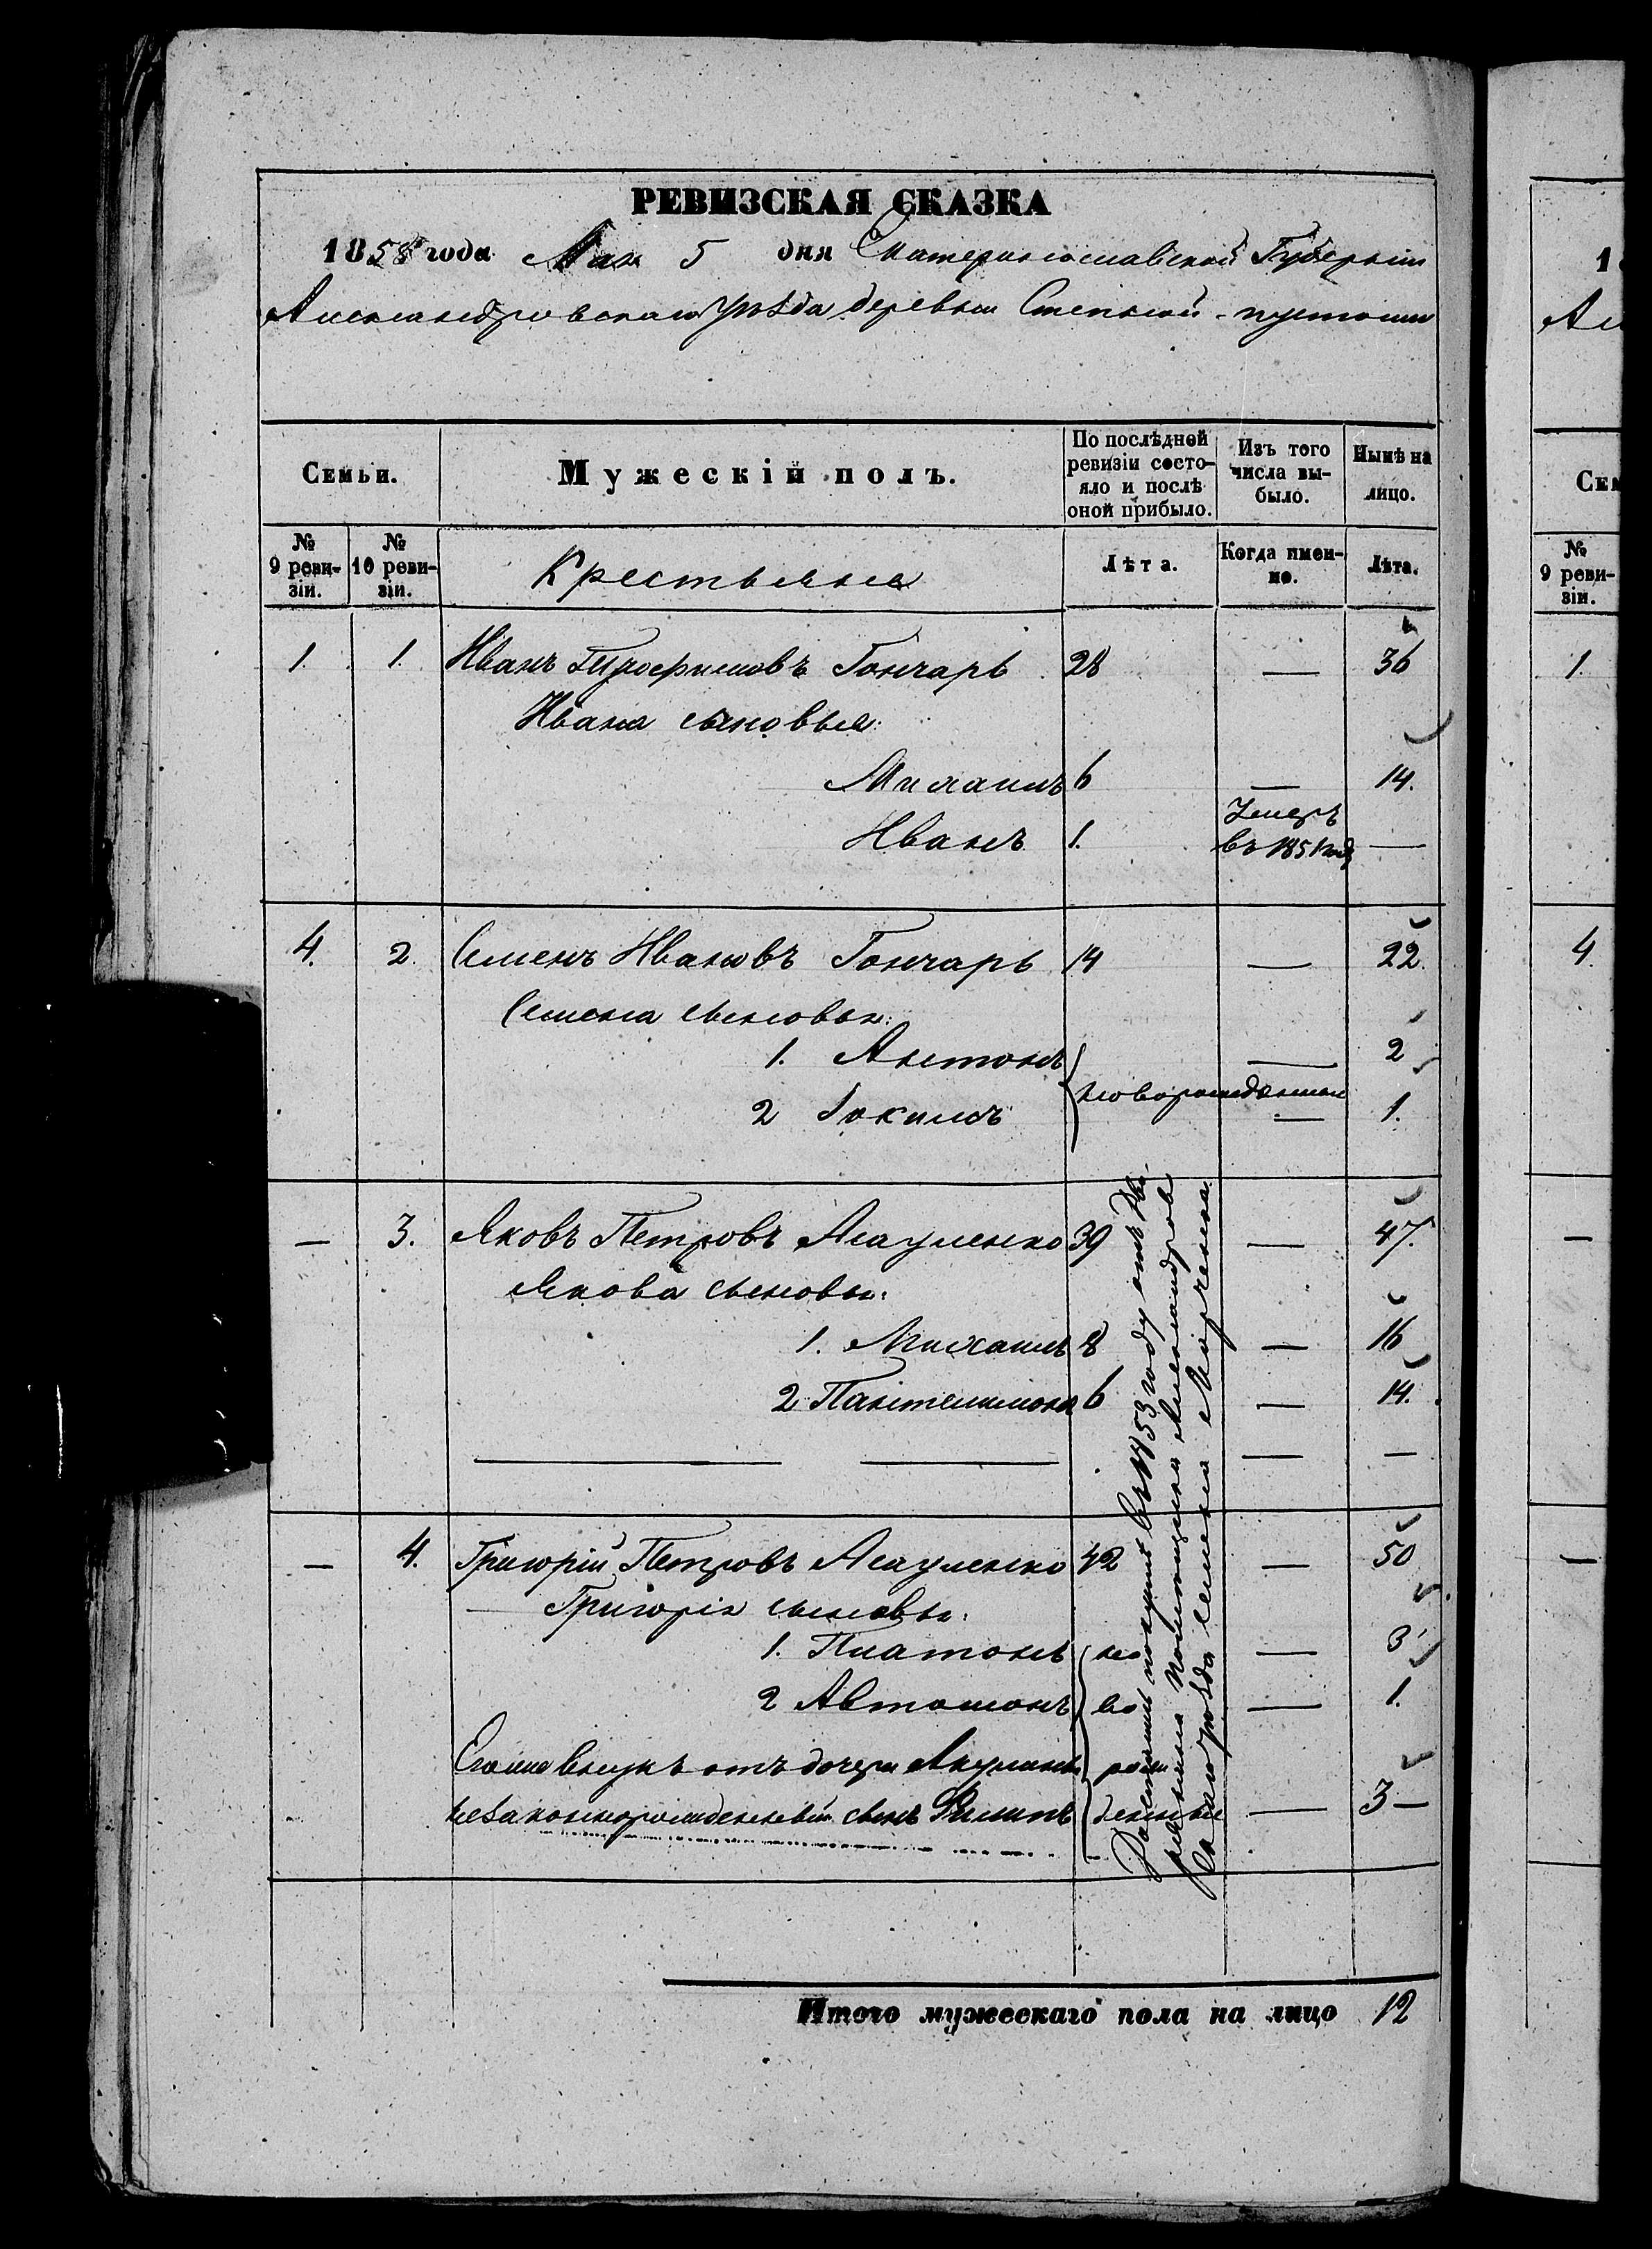 РЕВИЗСКАЯ СКАЗКА
1858 года Мая 5 дня Екатеринославской Губерніи
Александровскаго уѣзда деревни Степной-пустоши
Семьи.
Мужескій полъ.
По послѣдней ревизіи состо-
яло и послѣ
оной прибыло.
Изъ того
числа вы-
было.
Нынѣ на
лицо.
№
9 реви-
зіи.
№
10 реви-
зіи.
Крестьяне
Лѣта.
Когда имен-
но.
Лѣта.
1. 1. Иванъ Трофимовъ Гончарь 28 — 36
Ивана сыновья:
Михаилъ 6 — 14.
Иванъ 1. Умеръ
въ 1851 году —
4. 2. Семенъ Ивановъ Гончарь 14 — 22.
Семена сыновья:
1. Антонъ — 2
новорожденные
2 Іокимъ — 1.
— 3. Яковъ Петровъ Асауленко 39 — 47.
Якова сыновья:
1. Михаилъ 8 — 16
2 Пантелимонъ 6 — 14.
— —
— 4. Григорій Петровъ Асауленко 42 — 50
Григорія сыновья:
1. Платонъ но — 3
2 Автомонъ во — 1.
Его же внукъ отъ дочери Акулины рож
незаконнорожденный сынъ Филипъ денные — 3 —
въ 1853 году отъ
помещика Александров
скаго уѣзда Семена Марченка.
Итого мужескаго пола на лицо 12
1
Ал
Сем
№
9 реви-
зіи.
1.
4.
—
—